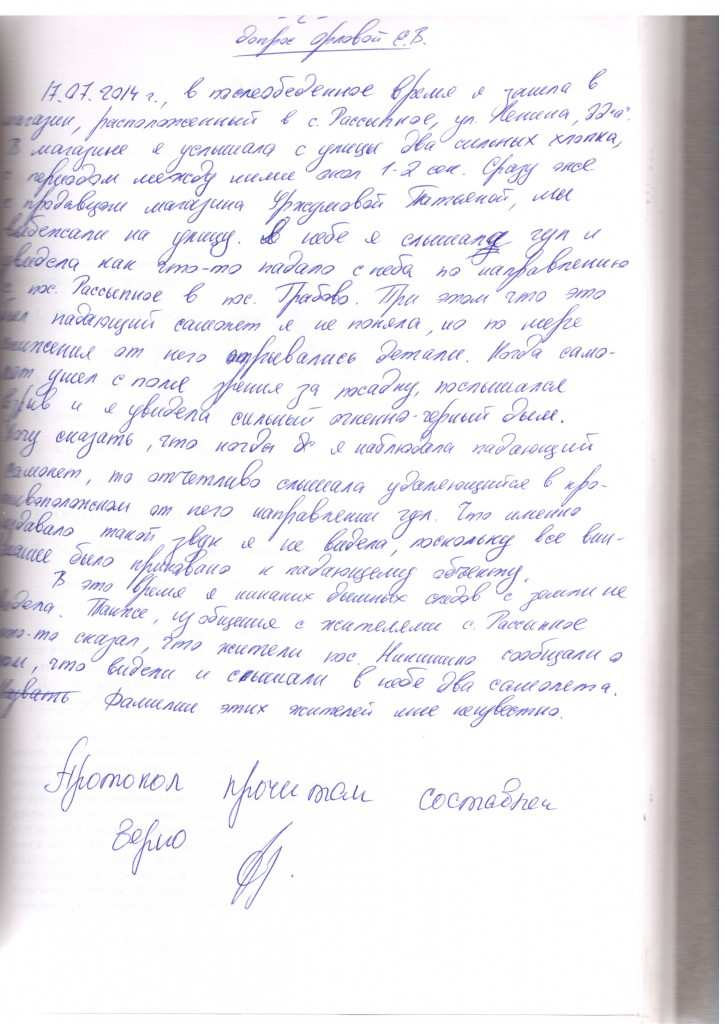 допрос Орловой С.В.
17.07.2014 г., в послеобеденное время я зашла в
магазин, расположенный в с. Рассыпное, ул. Ленина, 22
В магазине я услышала с улицы два сильных хлопка,
с периодом между ними окол 1-2 сек. Сразу же
с продавцом магазина Уржумовой Татьяной, мы
выбежали на улицу. В небе я слышала гул и
увидела как что-то падало с неба по направлению
с пос. Рассыпное в пос. Грабово. При этом что это
был падающий самолет я не поняла, но по мере
снижения от него отрывались детали. Когда само-
лет ушел с поля зрения за посадку, послышался
взрыв и я увидела сильный огненно-черный дым.
Могу сказать, что когда я наблюдала падающий
самолет, то отчетливо слышала удаляющийся в про-
тивоположном от него направлении гул. Что именно
издавало такой звук я не видела, поскольку все вни-
мание было приковано к падающему объекту.
В это время я никаких дымных следов с земли не
видела. Также, из общения с жителями с. Рассыпное
кто-то сказал, что жители пос. Никишино сообщали о
том, что видели и слышали в небе два самолета.
Назвать фамилии этих жителей мне неизвестно.
Протокол прочитан составлен
верно